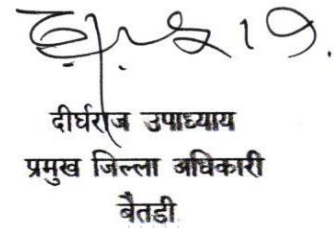 दीर्घराज उपाध्याय
प्रमुख जिल्ला अधिकारी
बैतडी